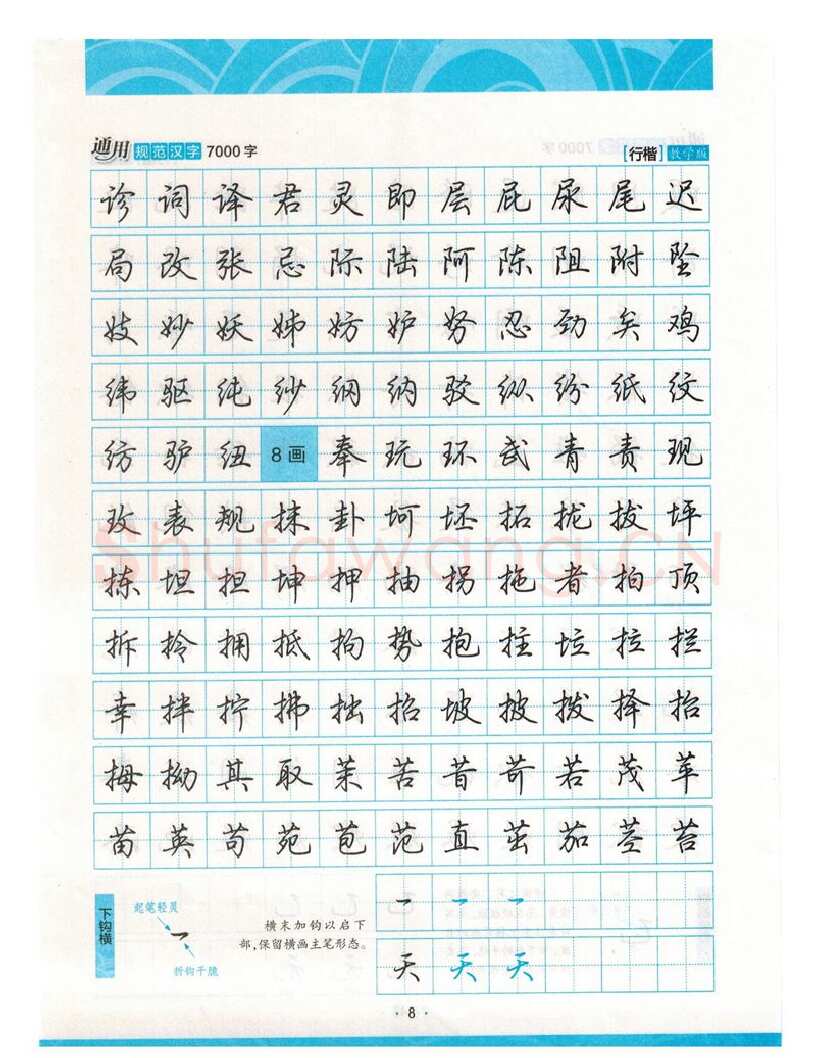 通用 规范汉字 7000字 [行楷] 教学版
诊词译君灵即层屁尿尾迟
局改张忌际陆阿陈阻附坠
妓妙妖姊妨妒努忍劲矣鸡
纬驱纯纱纲纳驳纵纷纸纹
纺驴纽 8画 奉玩环武青责现
玫表规抹卦坷坯拓拢拔坪
拣坦担坤押抽拐拖者拍顶
拆拎拥抵拘势抱拄垃拉拦
幸拌拧拂拙招坡披拨择抬
拇拗其取茉苦昔苛若茂苹
苗英苟苑苞范直茁茄茎苔
shufawang.CN
下钩横
起笔轻灵
折钩干脆
横末加钩以启下
部,保留横画主笔形态。
天 天 天
· 8 ·